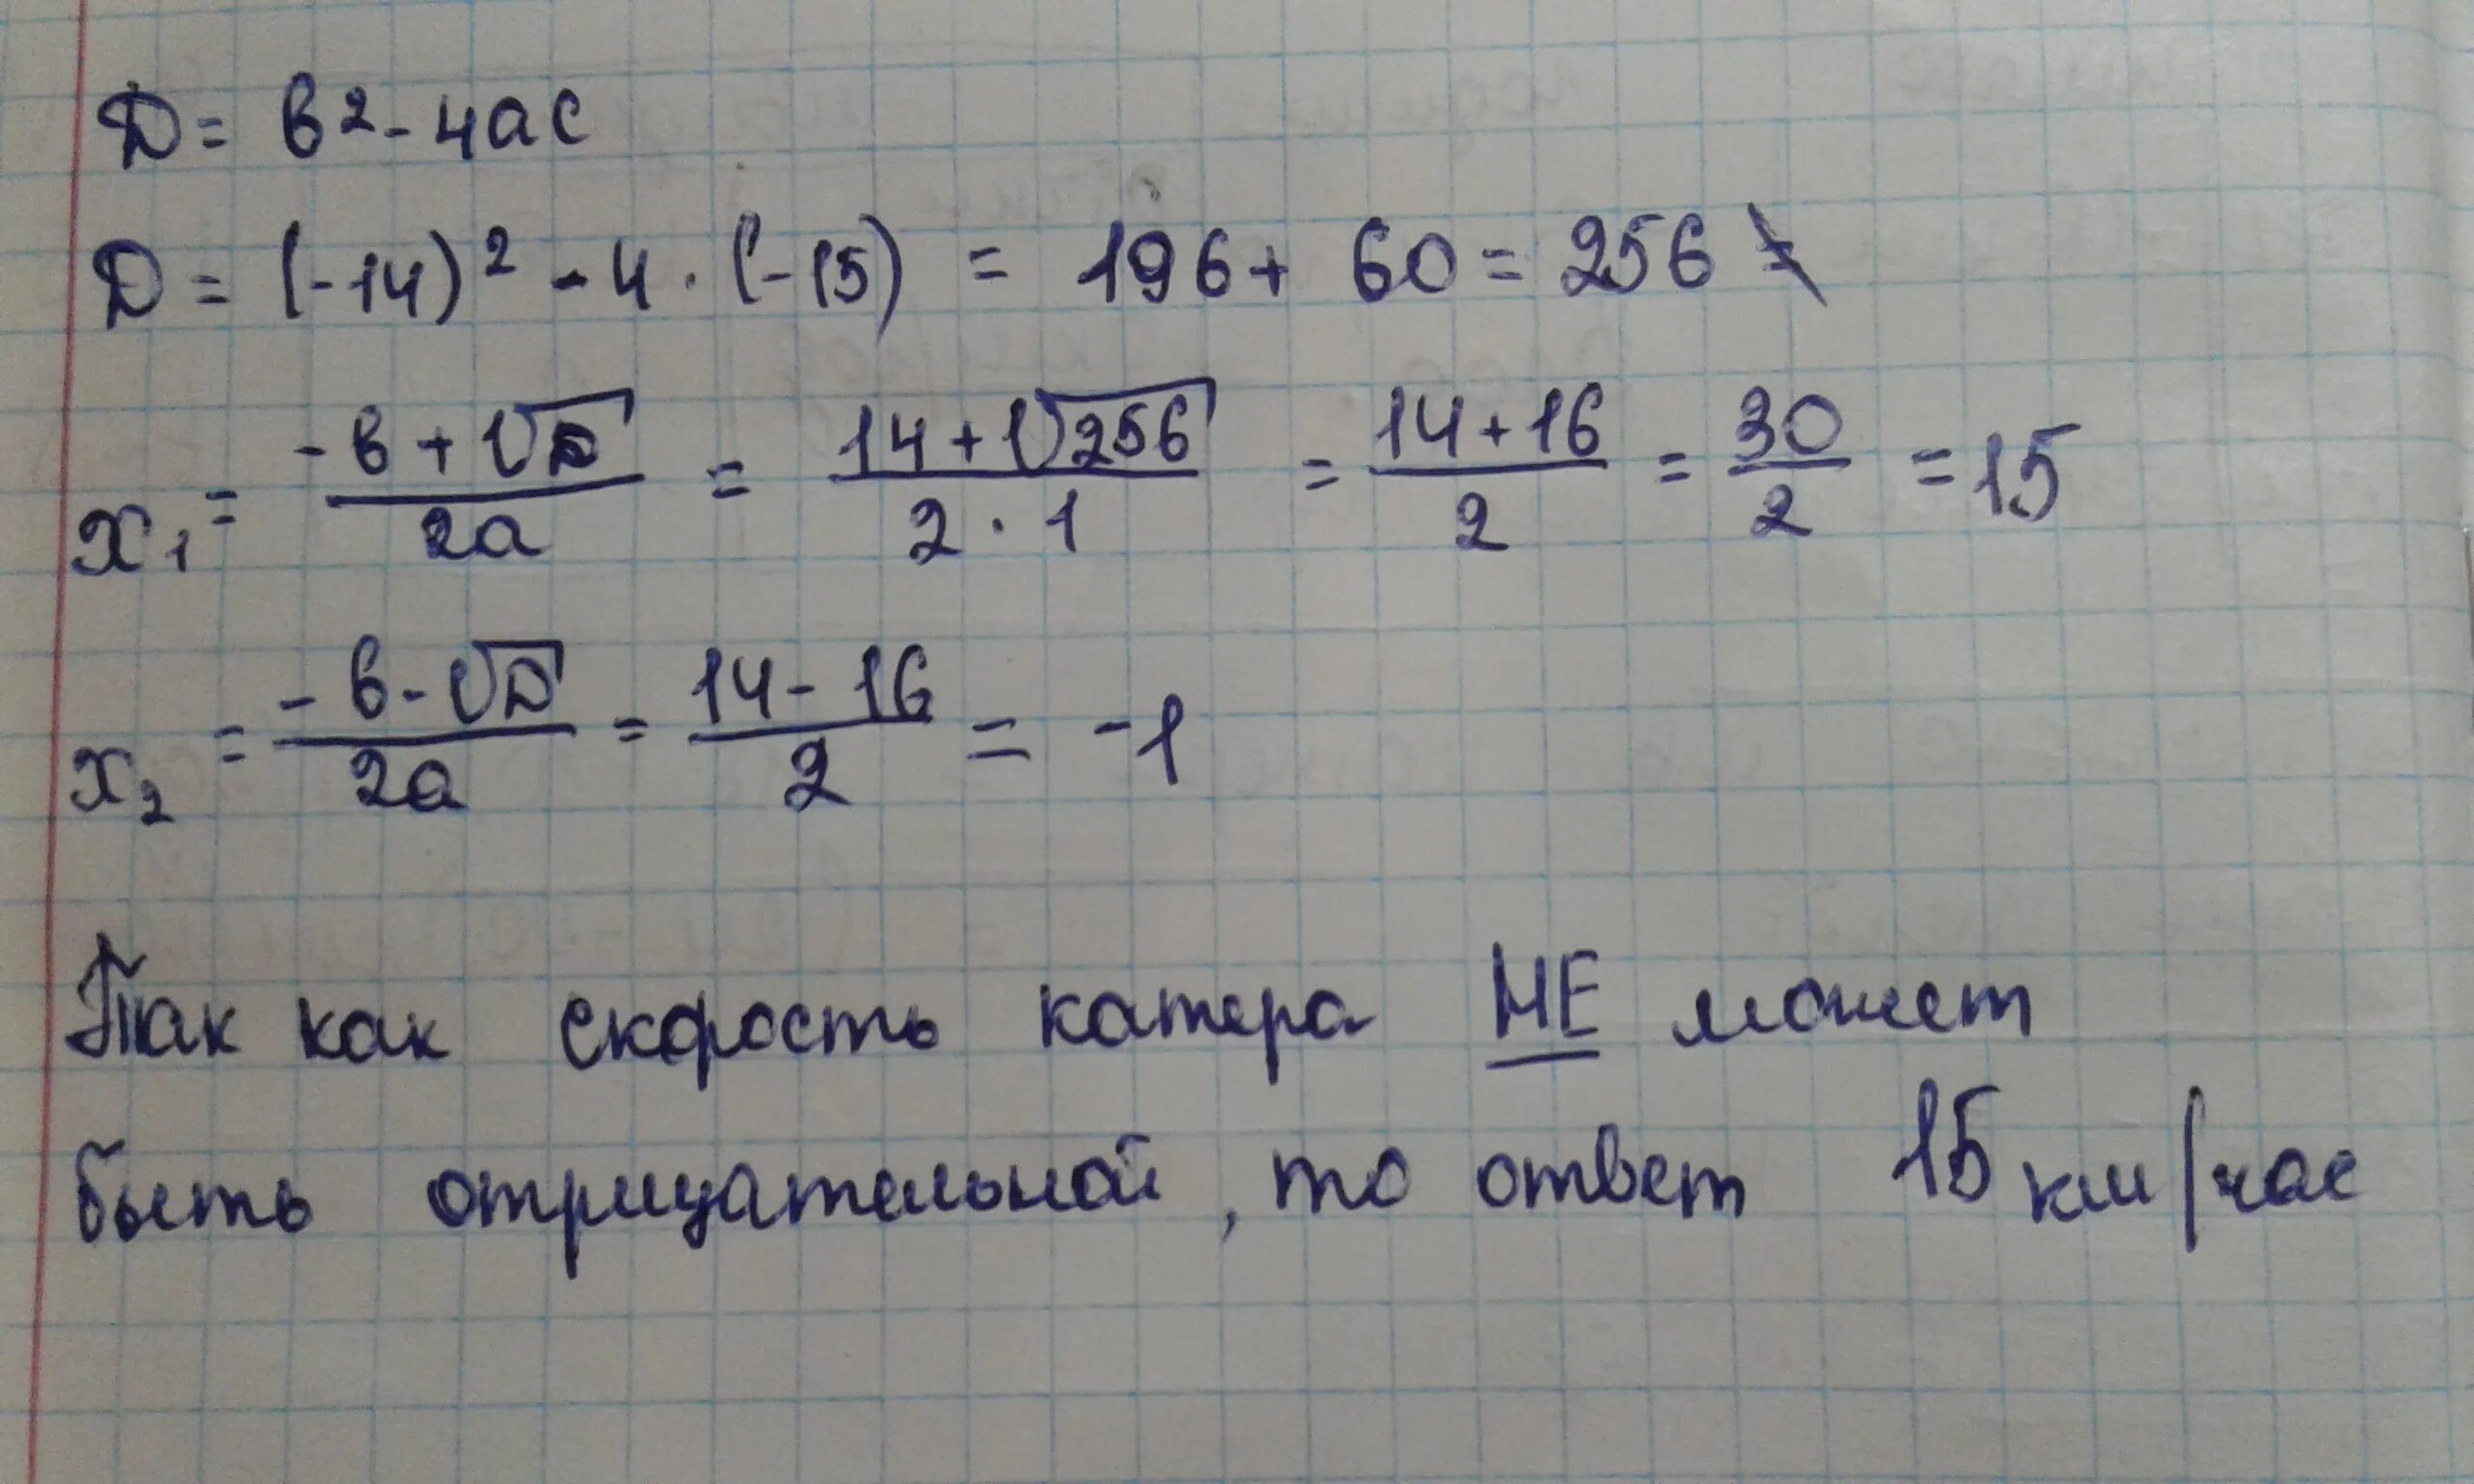 D = b² - 4ac
D = (-14)² - 4 · (-15) = 196 + 60 = 256
x₁ = (-b + √D)/(2a) = (14 + √256)/(2 · 1) = (14 + 16)/2 = 30/2 = 15
x₂ = (-b - √D)/(2a) = (14 - 16)/2 = -1
Так как скорость катера НЕ может
быть отрицательной, то ответ 15 км/час